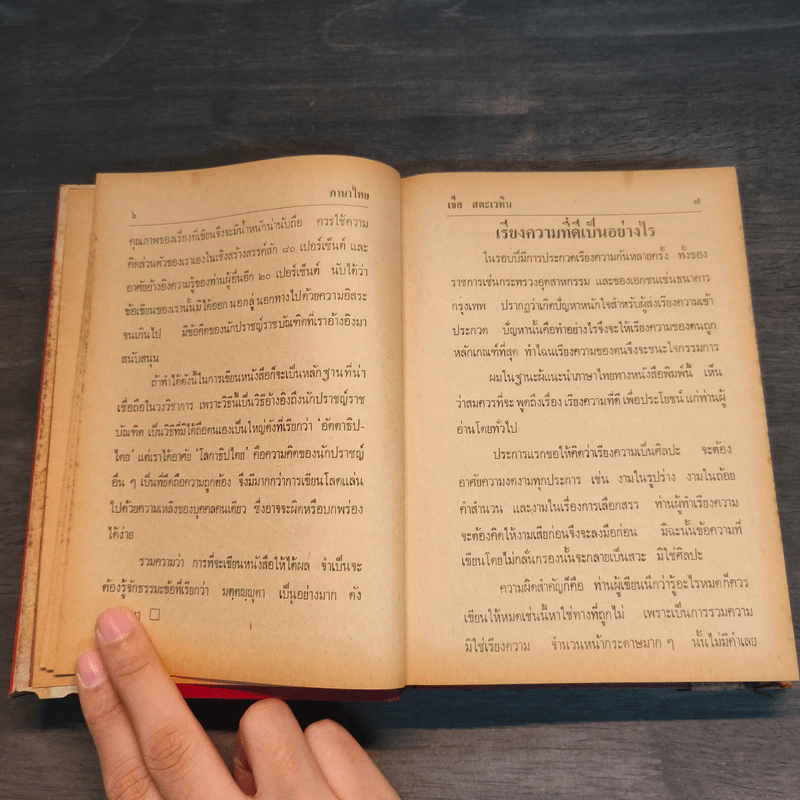 ๖
ภาษาไทย
คุณภาพของเรื่องที่เขียนจึงจะมีน้ำหนักน่านับถือ ควรใช้ความ
คิดส่วนตัวของเราเองในเชิงสร้างสรรค์สัก ๘๐ เปอร์เซ็นต์ และ
อาศัยอ้างอิงความรู้ของท่านผู้อื่นอีก ๒๐ เปอร์เซ็นต์ นับได้ว่า
ข้อเขียนของเรานั้นมิได้ออกนอกลู่นอกทางไปด้วยความอิสระ
จนเกินไป มีข้อคิดของนักปราชญ์ราชบัณฑิตที่เราอ้างอิงมา
สนับสนุน
ถ้าทำได้ดังนี้ในการเขียนหนังสือก็จะเป็นหลักฐานที่น่า
เชื่อถือในวงวิชาการ เพราะวิธีนี้เป็นวิธีอ้างอิงถึงนักปราชญ์ราช
บัณฑิต เป็นวิธีที่มิได้ถือตนเองเป็นใหญ่ดังที่เรียกว่า 'อัตตาธิป-
ไตย' แต่เราได้อาศัย 'โลกาธิปไตย' คือความคิดของนักปราชญ์
อื่น ๆ เป็นที่ยึดถือความถูกต้อง จึงมีมากกว่าการเขียนโลดแล่น
ไปด้วยความเหลิงของบุคคลคนเดียว ซึ่งอาจจะผิดหรือบกพร่อง
ได้ง่าย
รวมความว่า การที่จะเขียนหนังสือให้ได้ผล จำเป็นจะ
ต้องรู้จักธรรมะข้อที่เรียกว่า มตฺตญฺญุตา เป็นอย่างมาก ดัง
เจือ สตะเวทิน
๗
เรียงความที่ดีเป็นอย่างไร
ในรอบปีมีการประกวดเรียงความกันหลายครั้ง ทั้งของ
ราชการเช่นกระทรวงอุตสาหกรรม และของเอกชนเช่นธนาคาร
กรุงเทพ ปรากฏว่าเกิดปัญหาหนักใจสำหรับผู้ส่งเรียงความเข้า
ประกวด ปัญหานั้นคือทำอย่างไรจึงจะให้เรียงความของตนถูก
หลักเกณฑ์ที่สุด ทำไฉนเรียงความของตนจึงจะชนะใจกรรมการ
ผมในฐานะผู้แนะนำภาษาไทยทางหนังสือพิมพ์นี้ เห็น
ว่าสมควรที่จะ พูดถึงเรื่อง เรียงความที่ดี เพื่อประโยชน์ แก่ท่านผู้
อ่านโดยทั่วไป
ประการแรกขอให้คิดว่าเรียงความเป็นศิลปะ จะต้อง
อาศัยความงดงามทุกประการ เช่น งามในรูปร่าง งามในถ้อย
คำสำนวน และงามในเรื่องการเลือกสรร ท่านผู้ทำเรียงความ
จะต้องคิดให้งามเสียก่อนจึงจะลงมือก่อน มิฉะนั้นข้อความที่
เขียนโดยไม่กลั่นกรองนั้นจะกลายเป็นสวะ มิใช่ศิลปะ
ความผิดสำคัญก็คือ ท่านผู้เขียนนึกว่ารู้อะไรหมดก็ควร
เขียนให้หมดเช่นนี้หาใช่ทางที่ถูกไม่ เพราะเป็นการรวมความ
มิใช่เรียงความ จำนวนหน้ากระดาษมาก ๆ นั้นไม่มีค่าเลย